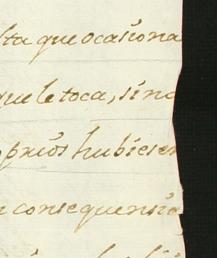 lta que ocasiona
que le toca, sino
oprios hubiesen
n consequensia